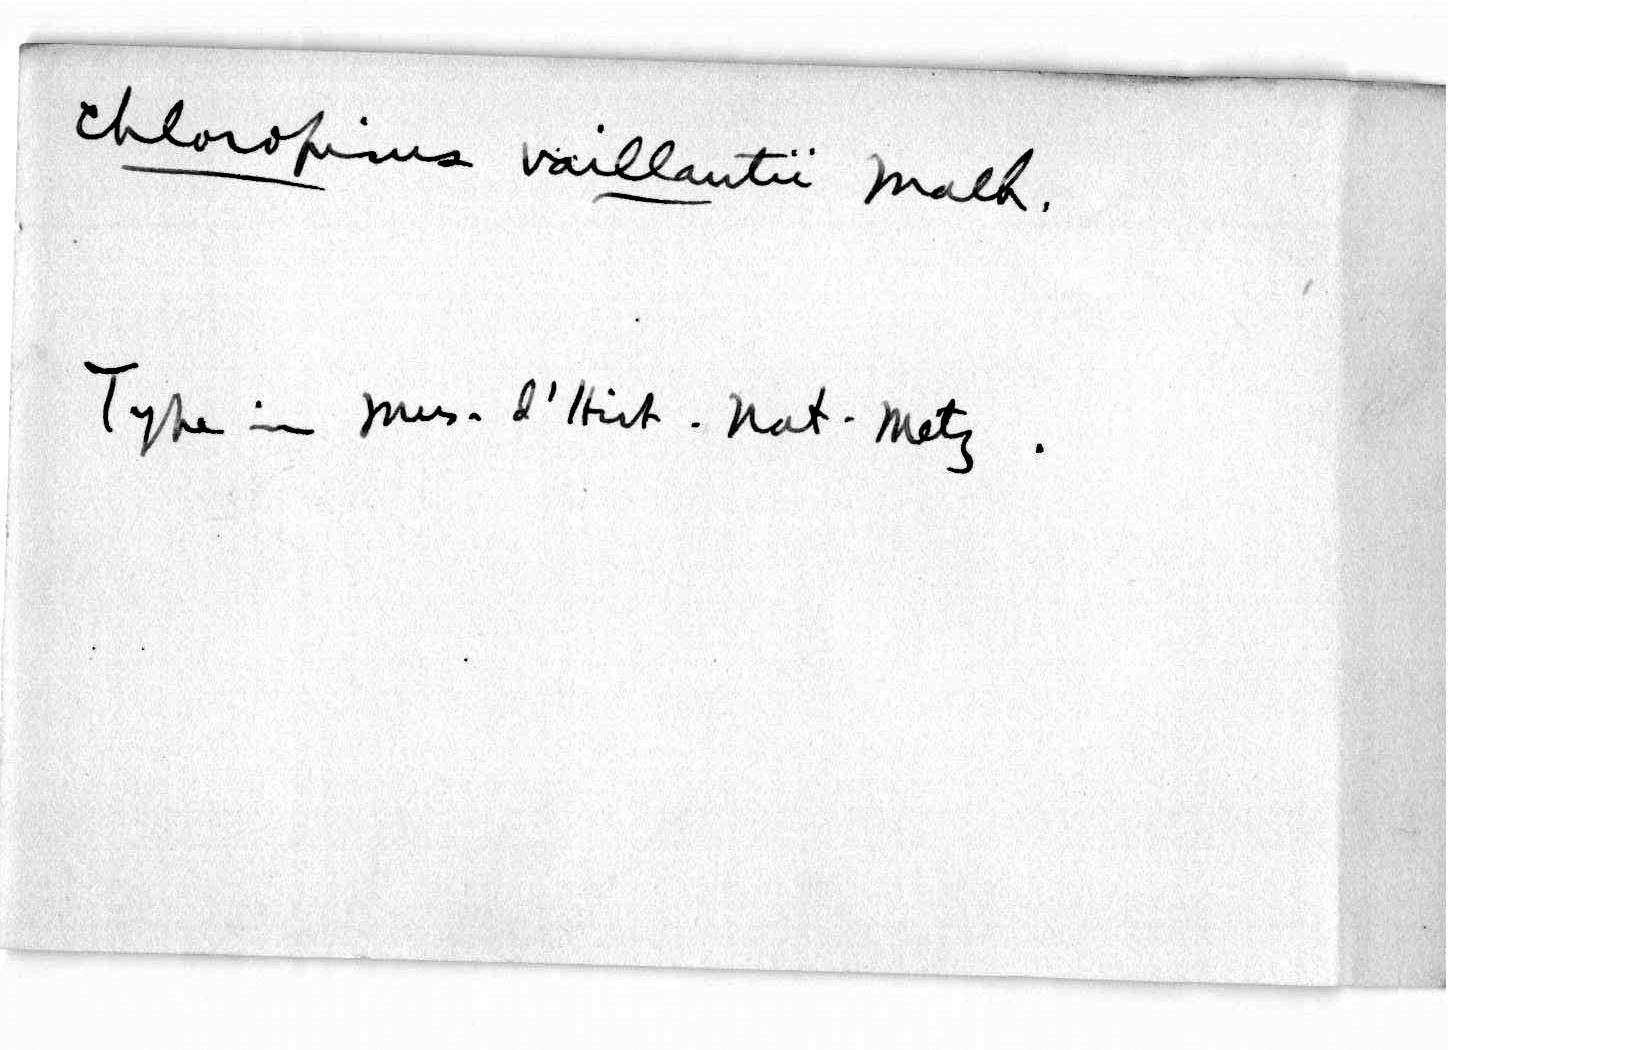 Chloropicus vaillantii Malh.
Type in Mus. d'Hist. Nat. Metz.